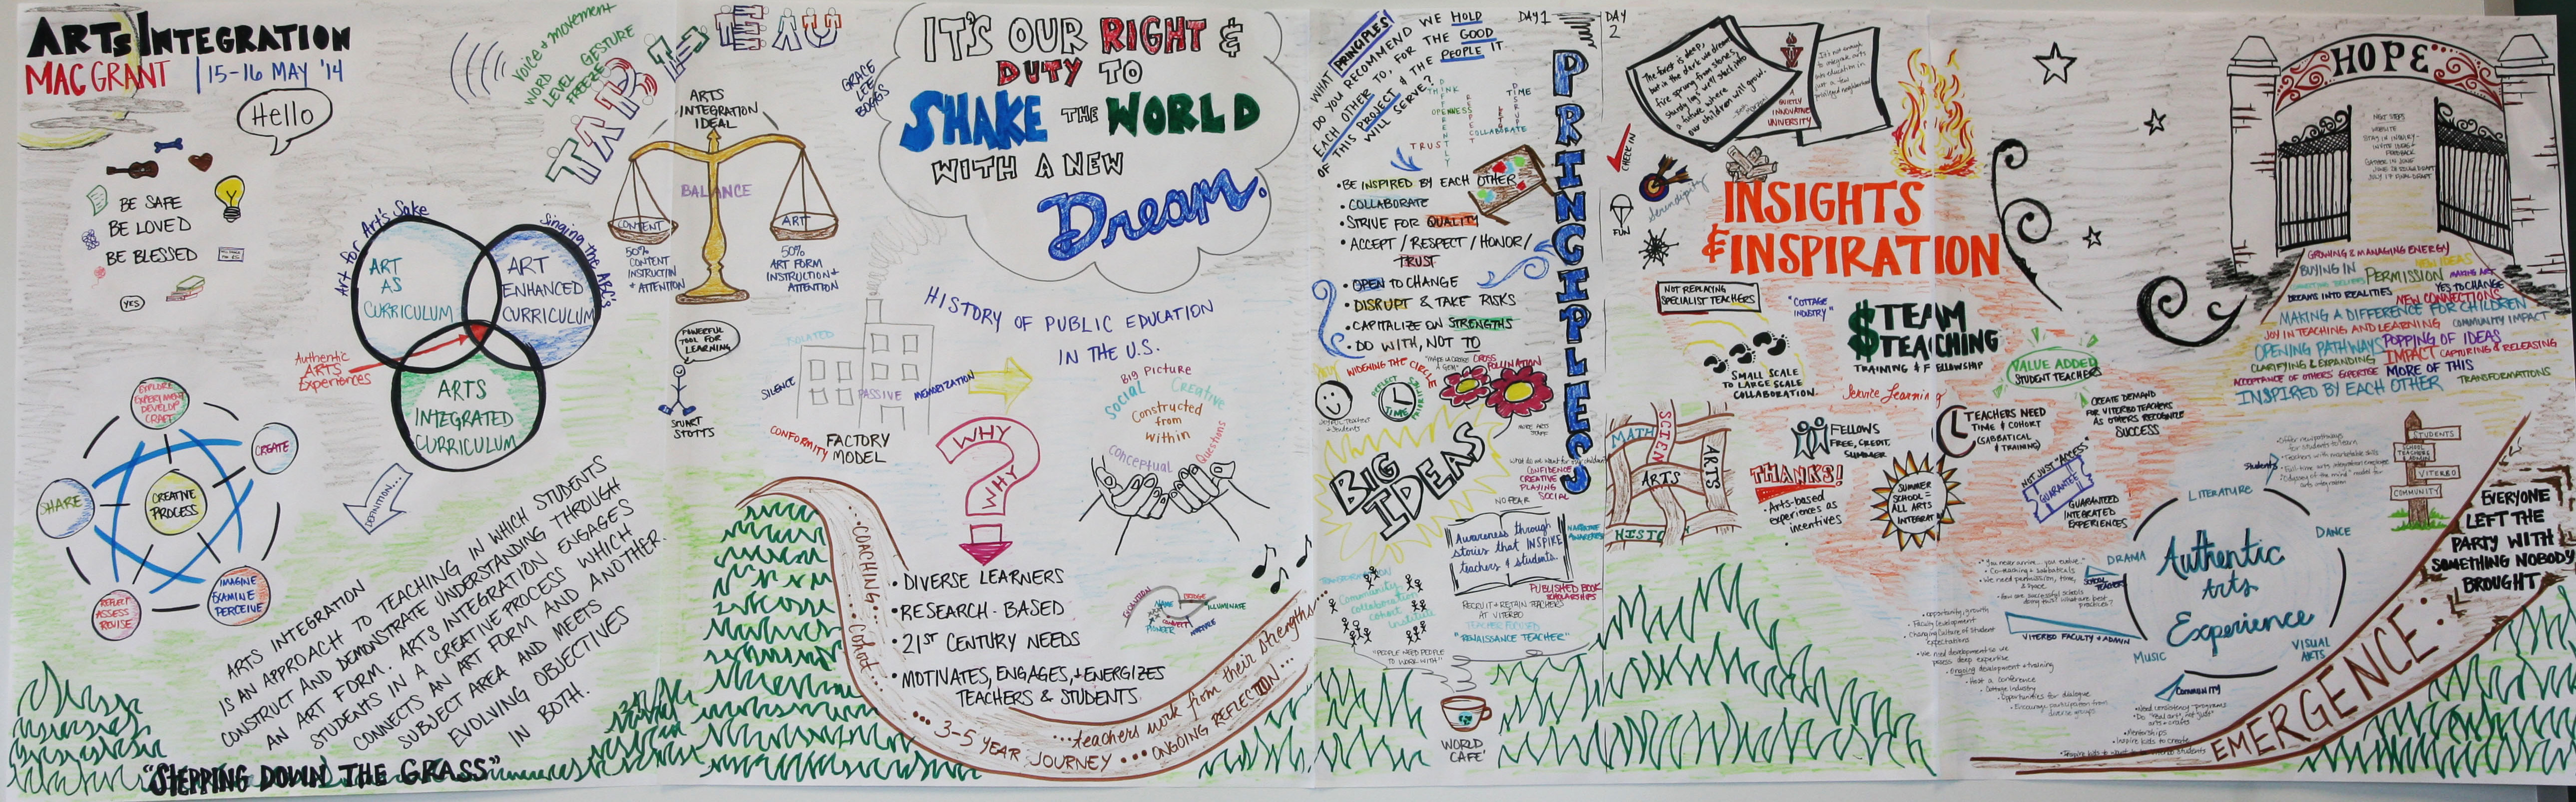 ARTS INTEGRATION
MAC GRANT | 15-16 MAY '14
Hello
BE SAFE
BE LOVED
BE BLESSED
YES
Voice & Movement
WORD
LEVEL GESTURE
FREEZE
TABLEAU
Art for Art's Sake
Singing the ABC's
ART
AS
CURRICULUM
ART
ENHANCED
CURRICULUM
ARTS
INTEGRATED
CURRICULUM
Authentic
ARTS
Experiences
EXPLORE
EXPERIMENT
DEVELOP
CRAFT
CREATE
SHARE
CREATIVE
PROCESS
REFLECT
ASSESS
REVISE
IMAGINE
EXAMINE
PERCEIVE
DEFINITION...
ARTS INTEGRATION
IS AN APPROACH TO TEACHING IN WHICH STUDENTS
CONSTRUCT AND DEMONSTRATE UNDERSTANDING THROUGH
AN ART FORM. ARTS INTEGRATION ENGAGES
STUDENTS IN A CREATIVE PROCESS WHICH
CONNECTS AN ART FORM AND ANOTHER
SUBJECT AREA AND MEETS
EVOLVING OBJECTIVES
IN BOTH.
"STEPPING DOWN THE GRASS"
ARTS
INTEGRATION
IDEAL
BALANCE
CONTENT
ART
50%
CONTENT
INSTRUCTION
+ ATTENTION
50%
ART FORM
INSTRUCTION +
ATTENTION
POWERFUL
TOOL FOR
LEARNING
STUART
STOTTS
GRACE
LEE
BOGGS
IT'S OUR RIGHT &
DUTY TO
SHAKE THE WORLD
WITH A NEW
Dream.
HISTORY OF PUBLIC EDUCATION
IN THE U.S.
ISOLATED
SILENCE
PASSIVE
MEMORIZATION
CONFORMITY
FACTORY
MODEL
Big Picture
Social
Creative
Constructed
from
within
Conceptual
Questions
WHY
WHY
• DIVERSE LEARNERS
• RESEARCH-BASED
• 21ST CENTURY NEEDS
• MOTIVATES, ENGAGES, + ENERGIZES
TEACHERS & STUDENTS
NAME
CONNECT
ILLUMINATE
NURTURE
PIONEER
...COACHING...
Cohort...
...3-5 YEAR JOURNEY...
...teachers work from their strengths...
ONGOING REFLECTION...
WHAT PRINCIPLES
DO YOU RECOMMEND WE HOLD
EACH OTHER TO, FOR THE GOOD
OF THIS PROJECT & THE PEOPLE IT
WILL SERVE?
DAY 1
THINK
DIFFERENTLY
OPENNESS
RESPECT
TIME
COLLABORATE
TRUST
PRINCIPLES
• BE INSPIRED BY EACH OTHER
• COLLABORATE
• STRIVE FOR QUALITY
• ACCEPT / RESPECT / HONOR /
TRUST
• OPEN TO CHANGE
• DISRUPT & TAKE RISKS
• CAPITALIZE ON STRENGTHS
• DO WITH, NOT TO
WIDENING THE CIRCLE
CROSS
POLLINATION
REFLECT
TIME
BIG
IDEAS
CONFIDENCE
CREATIVE
PLAYING
SOCIAL
NO FEAR
Awareness through
stories that INSPIRE
teachers & students.
PUBLISHED BOOK
SCHOLARSHIPS
Community
collaboration
cohort
institute
"PEOPLE NEED PEOPLE
TO WORK WITH"
RECRUIT + RETAIN TEACHERS
AT VITERBO
"RENAISSANCE TEACHER"
WORLD
CAFE'
DAY
2
The forest is deep,
but in the dark we dream
fire sprung from stones,
sturdy logs we'll stack into
a future where
our children will grow.
A
QUIETLY
INNOVATIVE
UNIVERSITY
It's not enough
to integrate arts
in education in
just a few
privileged neighborhoods
CHECK IN
Serendipity
FUN
INSIGHTS
& INSPIRATION
NOT REPLAYING
SPECIALIST TEACHERS
"COTTAGE
INDUSTRY"
$TEAM
TEACHING
TRAINING & FELLOWSHIP
SMALL SCALE
TO LARGE SCALE
COLLABORATION
Service Learning
VALUE ADDED
STUDENT TEACHERS
CREATE DEMAND
FOR VITERBO TEACHERS
AS OTHERS RECOGNIZE
SUCCESS
MATH
ARTS
ARTS
FELLOWS
FREE, CREDIT,
SUMMER
TEACHERS NEED
TIME & COHORT
(SABBATICAL
& TRAINING)
THANKS!
• Arts-based
experiences as
incentives
SUMMER
SCHOOL =
ALL ARTS
NOT JUST "ACCESS"
GUARANTEE
GUARANTEED
INTEGRATED
EXPERIENCES
HOPE
NEXT STEPS
WEBSITE
GROWING & MANAGING ENERGY
BUYING IN
PERMISSION
NEW IDEAS
MAKING ART
DREAMS INTO REALITIES
YES TO CHANGE
NEW CONNECTIONS
MAKING A DIFFERENCE FOR CHILDREN
JOY IN TEACHING AND LEARNING
COMMUNITY IMPACT
OPENING PATHWAYS
POPPING OF IDEAS
CLARIFYING & EXPANDING
IMPACT
CAPTURING & RELEASING
ACCEPTANCE OF OTHERS EXPERTISE
MORE OF THIS
INSPIRED BY EACH OTHER
TRANSFORMATIONS
STUDENTS
VITERBO
COMMUNITY
Students
LITERATURE
DANCE
DRAMA
Authentic
Arts
Experience
VISUAL
ARTS
MUSIC
VITERBO FACULTY + ADMIN
COMMUNITY
• Mentorships
• Inspire kids to create
EVERYONE
LEFT THE
PARTY WITH
SOMETHING NOBODY
BROUGHT
EMERGENCE: